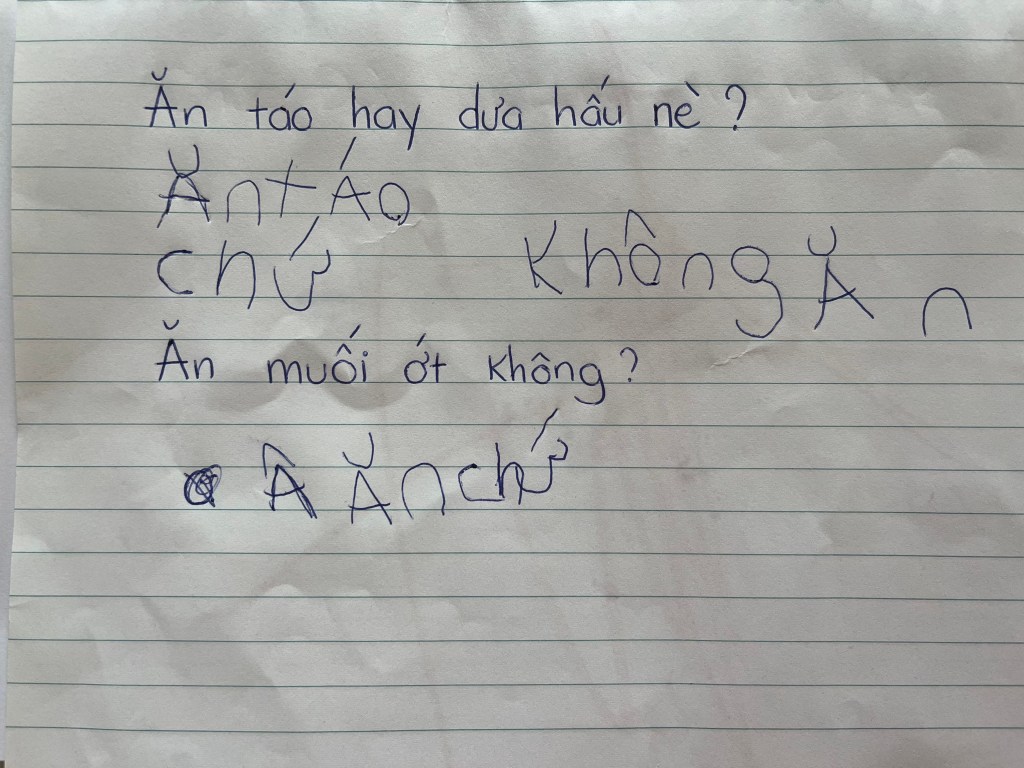 Ăn táo hay dưa hấu nè?
Ăn tÁo
chứ
Không Ăn
Ăn muối ớt không?
Â Ăn chứ